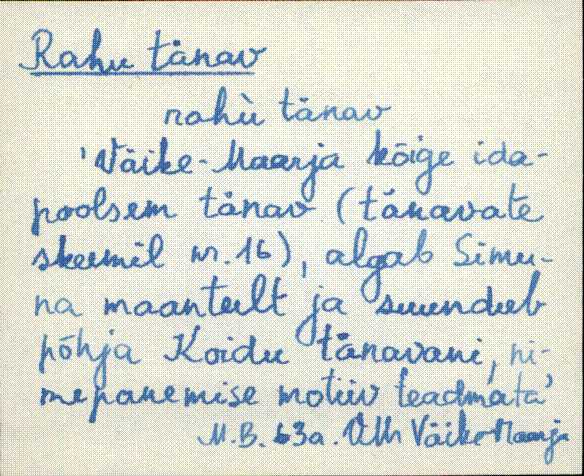 Rahu tänav
rahù tänav
'Väike-Maarja kõige ida-
poolsem tänav (tänavate
skeemil nr. 16), algab Simu-
na maanteelt ja suundub
põhja Koidu tänavani, ni-
mepanemise motiiv teadmata'
M.B. 63a. Väike-Maarja